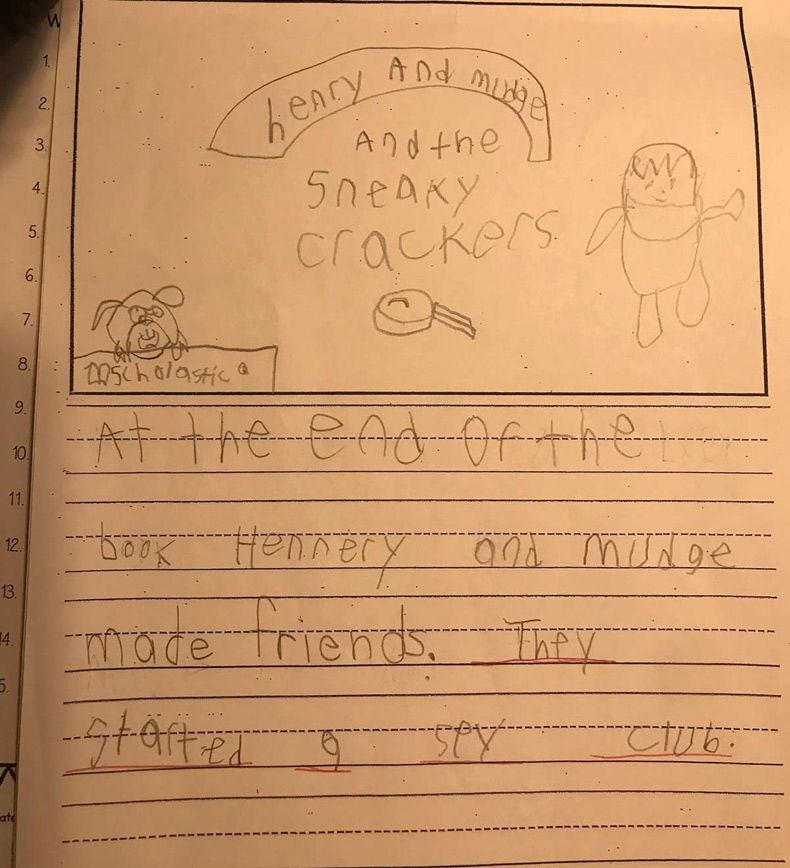 W
1.
2.
3.
4.
5.
6.
7.
8.
9.
10.
11.
12.
13.
4.
5.
ate
henry And mudge
And the
Sneaky
crackers
Scholastic
At the end of the
book Hennery and mudge
made friends. They
started a spy club.